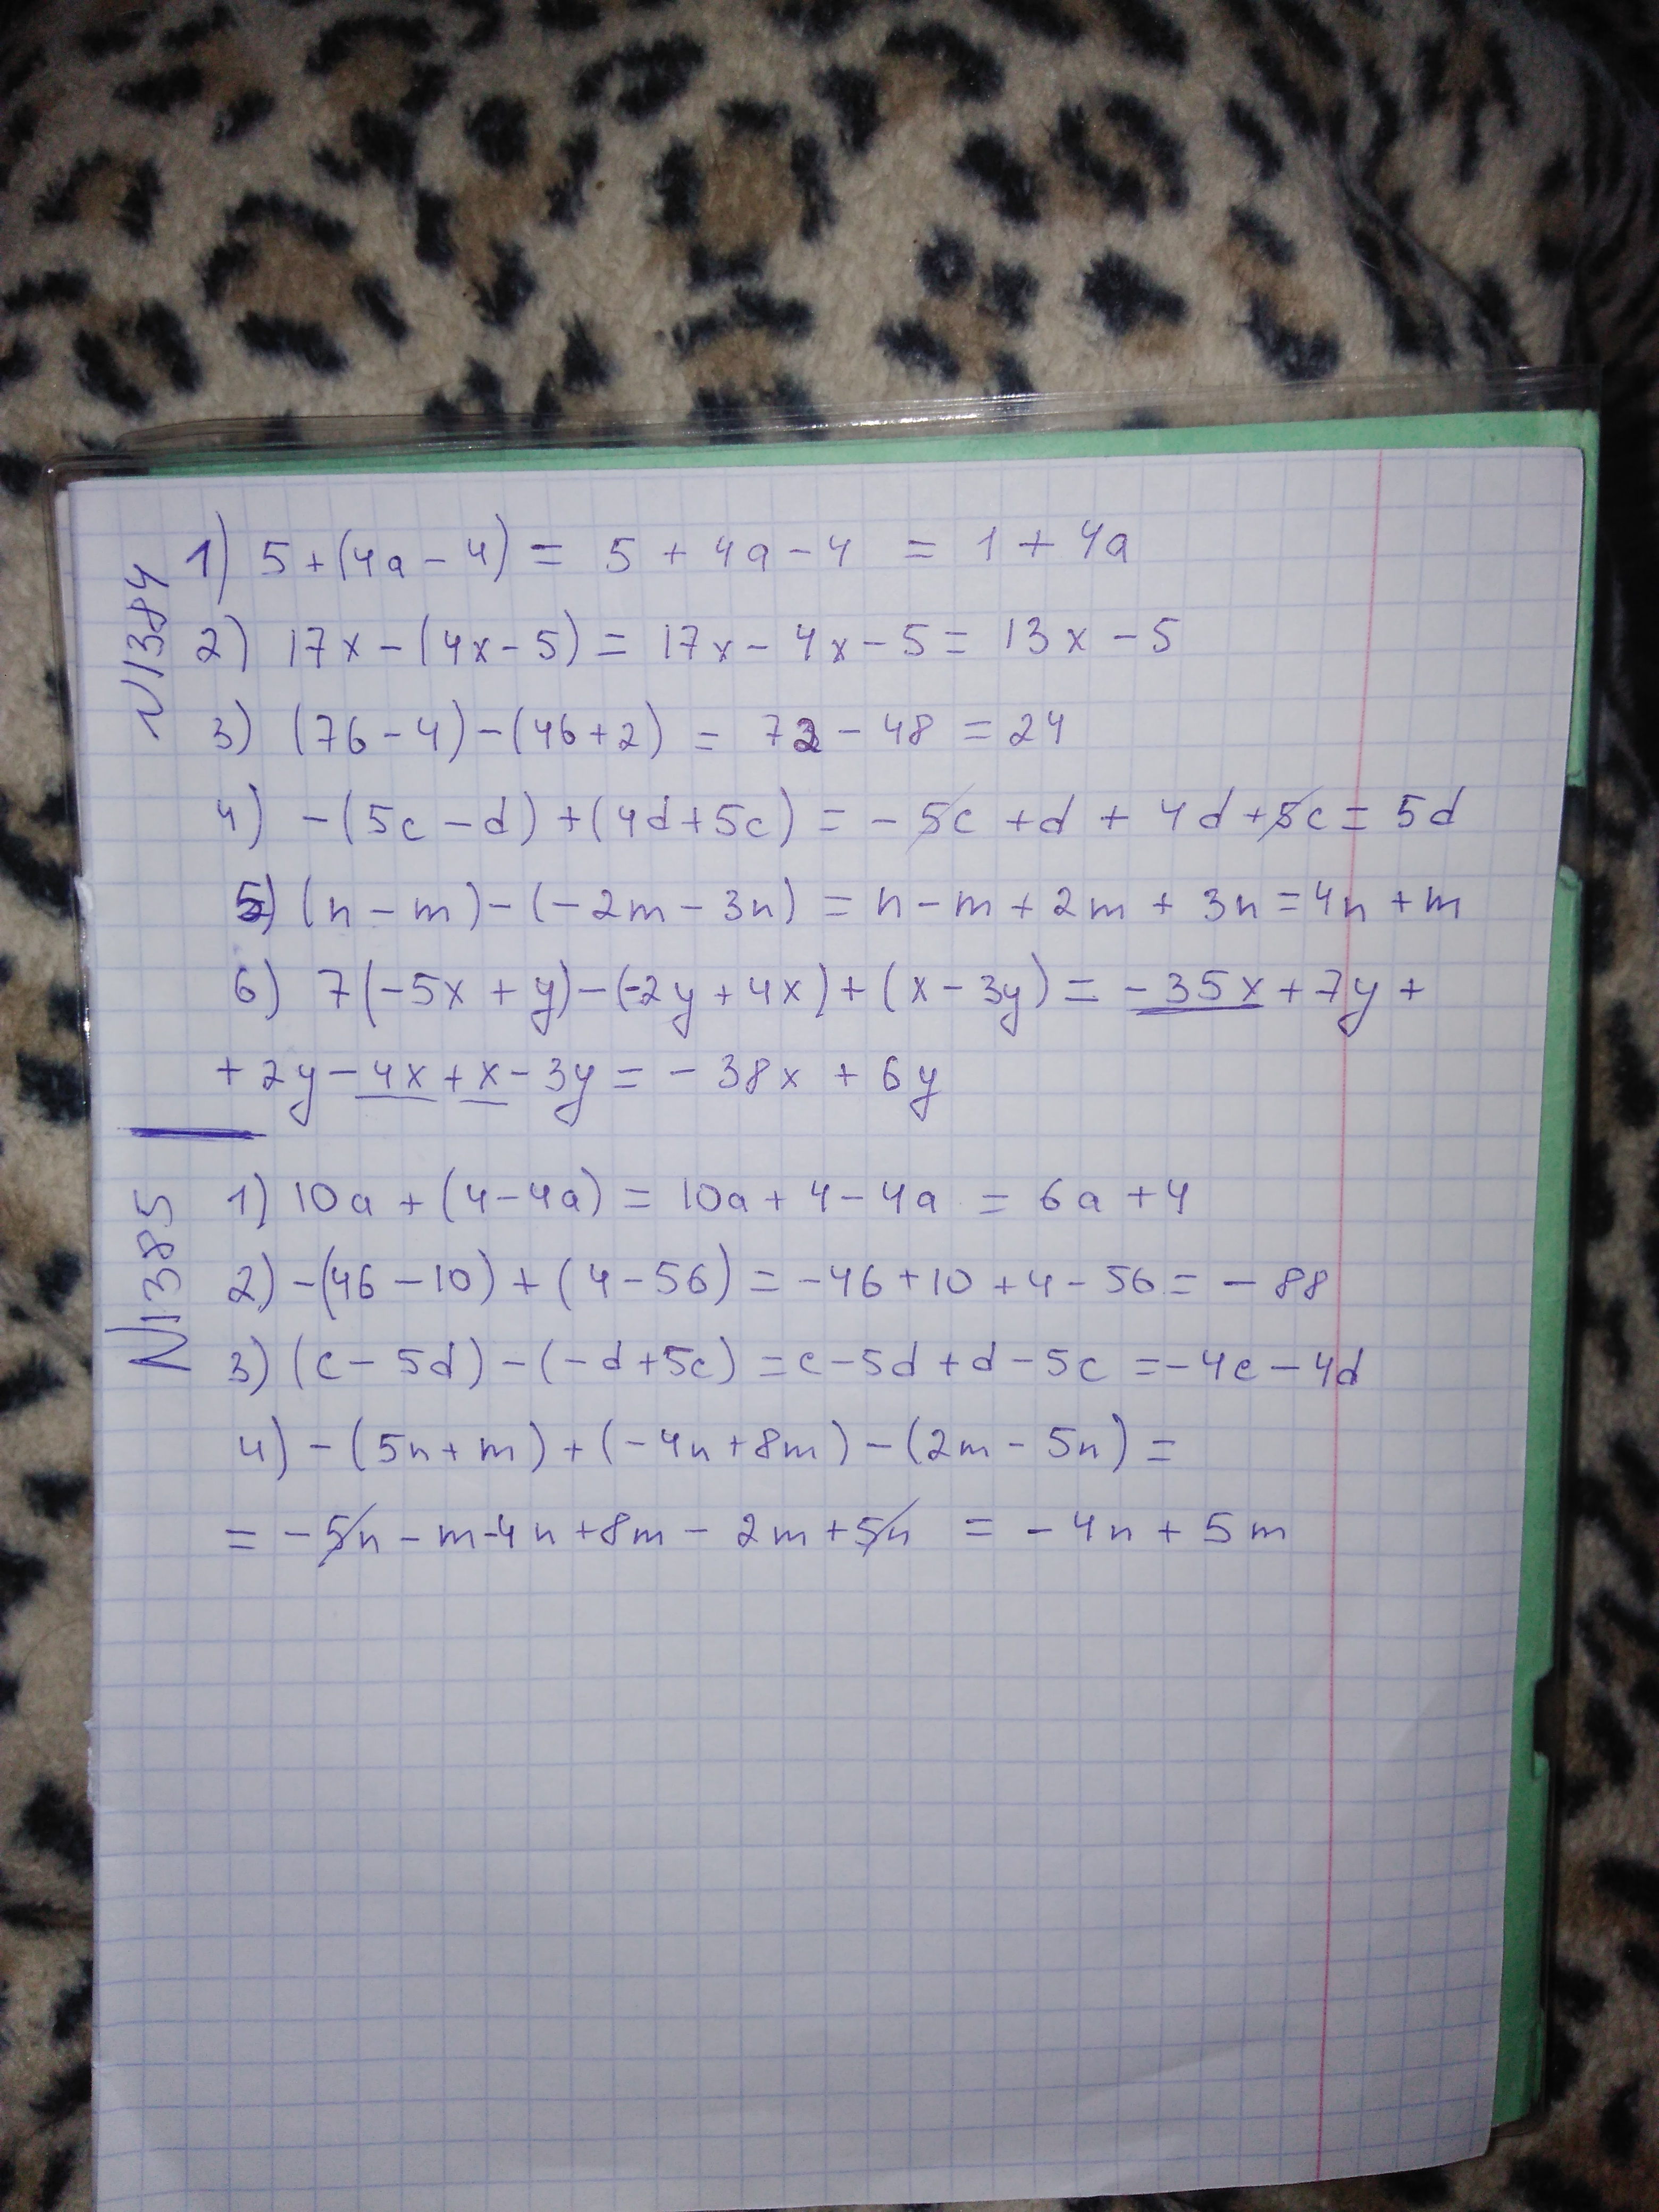 N1384
1) 5+(4a-4) = 5+4a-4 = 1+4a
2) 17x-(4x-5) = 17x-4x-5 = 13x-5
3) (76-4)-(46+2) = 72-48 = 24
4) -(5c-d)+(4d+5c) = -5c+d+4d+5c = 5d
5) (n-m)-(-2m-3n) = n-m+2m+3n = 4n+m
6) 7(-5x+y)-(-2y+4x)+(x-3y) = -35x+7y+
+2y-4x+x-3y = -38x+6y
N1385
1) 10a+(4-4a) = 10a+4-4a = 6a+4
2) -(46-10)+(4-56) = -46+10+4-56 = -88
3) (c-5d)-(-d+5c) = c-5d+d-5c = -4c-4d
4) -(5n+m)+(-4n+8m)-(2m-5n) =
= -5n-m-4n+8m-2m+5n = -4n+5m